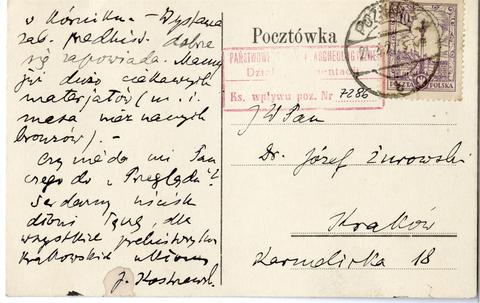 w Kórniku. – Wystawa
zab. przedhist. dobrze
się zapowiada. Mamy
już dużo ciekawych
materjałów (m. i.
masa nieznanych
bronzów). –
Czy nie da mi Pan
czego do „Przeglądu"?
Serdeczny uścisk
dłoni Łączę, dla
wszystkich prehistoryków
Krakowskich ukłony
J. Kostrzewski
Pocztówka
PAŃSTWOWE ARCHEOLOGICZNE
Dział
Ks. wpływu poz. Nr 7286
POZNAŃ
POLSKA
JWPan
Dr. Józef Żurowski
Kraków
Karmelicka 18